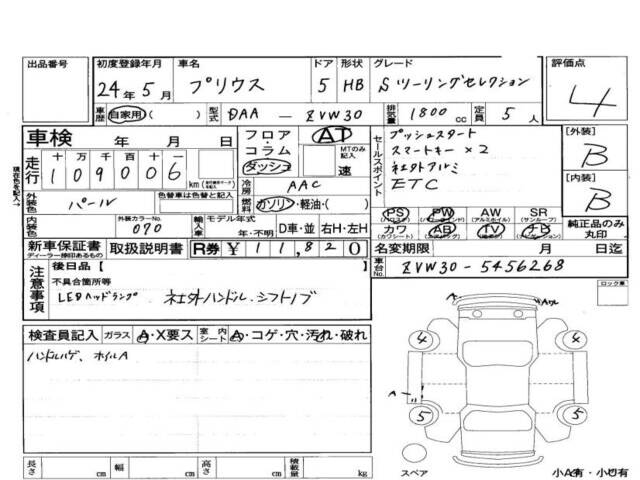 出品番号
初度登録年月 24年5月
車名 プリウス
ドア 5 形状 HB
グレード Sツーリングセレクション
評価点 4
車歴 自家用 ( )
型式 DAA - ZVW30
排気量 1800 cc
定員 5 人
車検 年 月 日
フロア・コラム・ダッシュ
AT
MTのみ記入 速
セールスポイント
プッシュスタート
スマートキー×2
社外アルミ
ETC
[外装] B
[内装] B
走行 十 万 千 百 十 一
109006 km
現在色を記入→
冷房 AAC
外装色 パール
色替車は色替と記入
燃料 ガソリン・軽油・( )
内装色
外装カラーNo. 070
輸入車 モデル年式 年・不明
D車・並 右H・左H
PS PW AW SR
(パワステ) (パワーウィンド) (アルミホイル) (サンルーフ)
カワ AB TV ナビ
(カワシート) (エアバッグ) (テレビ) (ナビ)
純正品のみ丸印
新車保証書
ディーラー捺印あるもの
取扱説明書
R券 ¥11,820
名変期限 月 日迄
車台No. ZVW30-5456268
注意事項
後日品 [ ]
不具合箇所等
LEDヘッドランプ 社外ハンドル.シフトノブ
ロック車
検査員記入 ガラス A・X要ス 室内シート A・コゲ・穴・汚れ・破れ
ハンドルハゲ、ホイルA
A
Aワレ
4 4
A
5 5
スペア
小A有・小U有
長さ cm 幅 cm 高さ cm 積載量 kg